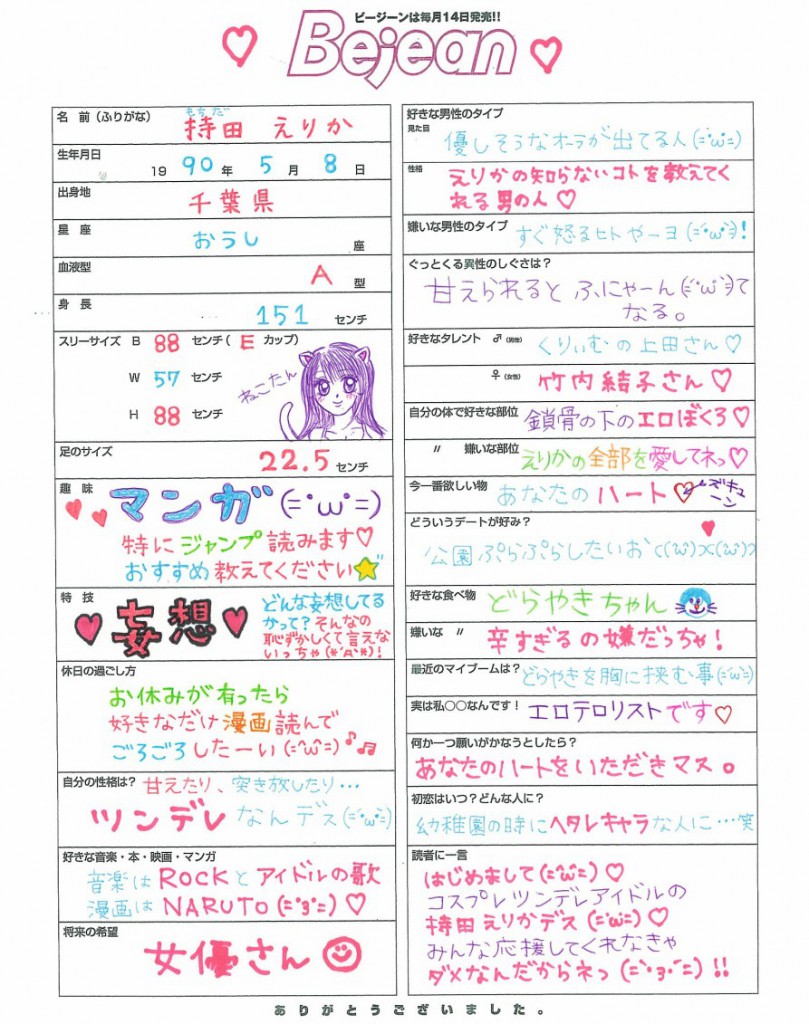 ビージーンは毎月14日発売!!
Bejean
名 前(ふりがな)
もちだ
持田 えりか
生年月日
19 90 年 5 月 8 日
出身地
千葉県
星 座
おうし 座
血液型
A 型
身 長
151 センチ
スリーサイズ B 88 センチ( E カップ)
W 57 センチ
H 88 センチ
ねこたん
足のサイズ
22.5 センチ
趣 味
マンガ(=・ω・=)
特にジャンプ読みます♡
おすすめ教えてください☆
特 技
♥妄想♥
どんな妄想してる
かって?そんなの
恥ずかしくて言えな
いっちゃ(*´Д`*)!
休日の過ごし方
お休みが有ったら
好きなだけ漫画読んで
ごろごろしたーい(=^ω^=)♪♬
自分の性格は? 甘えたり、突き放したり…
ツンデレなんデス(=´ω`=)
好きな音楽・本・映画・マンガ
音楽はROCKとアイドルの歌
漫画はNARUTO(=・3・=)♡
将来の希望
女優さん☺
好きな男性のタイプ
見た目
優しそうなオーラが出てる人(=´ω`=)
性格
えりかの知らないコトを教えてく
れる男の人♡
嫌いな男性のタイプ すぐ怒るヒトやーヨ(=・ω・=)!
ぐっとくる異性のしぐさは?
甘えられると ふにゃーん(=´ω`=)て
なる。
好きなタレント ♂(男性) くりぃむの上田さん♡
♀(女性) 竹内結子さん♡
自分の体で好きな部位 鎖骨の下のエロぼくろ♥
〃 嫌いな部位 えりかの全部を愛してネっ♡
今一番欲しい物 あなたのハート♡ズキューン
どういうデートが好み?
公園ぷらぷらしたいお c(('ω')x('ω')っ
好きな食べ物 どらやきちゃん
嫌いな 〃 辛すぎるの嫌だっちゃ!
最近のマイブームは? どらやきを胸に挟む事(=´ω`=)
実は私○○なんです! エロテロリストです♡
何か一つ願いがかなうとしたら?
あなたのハートをいただきマス。
初恋はいつ?どんな人に?
幼稚園の時にヘタレキャラな人に…笑
読者に一言
はじめまして(=^ω^=)♡
コスプレツンデレアイドルの
持田えりかデス(=´ω`=)♡
みんな応援してくれなきゃ
ダメなんだからネっ(=・3・=)!!
ありがとうございました。